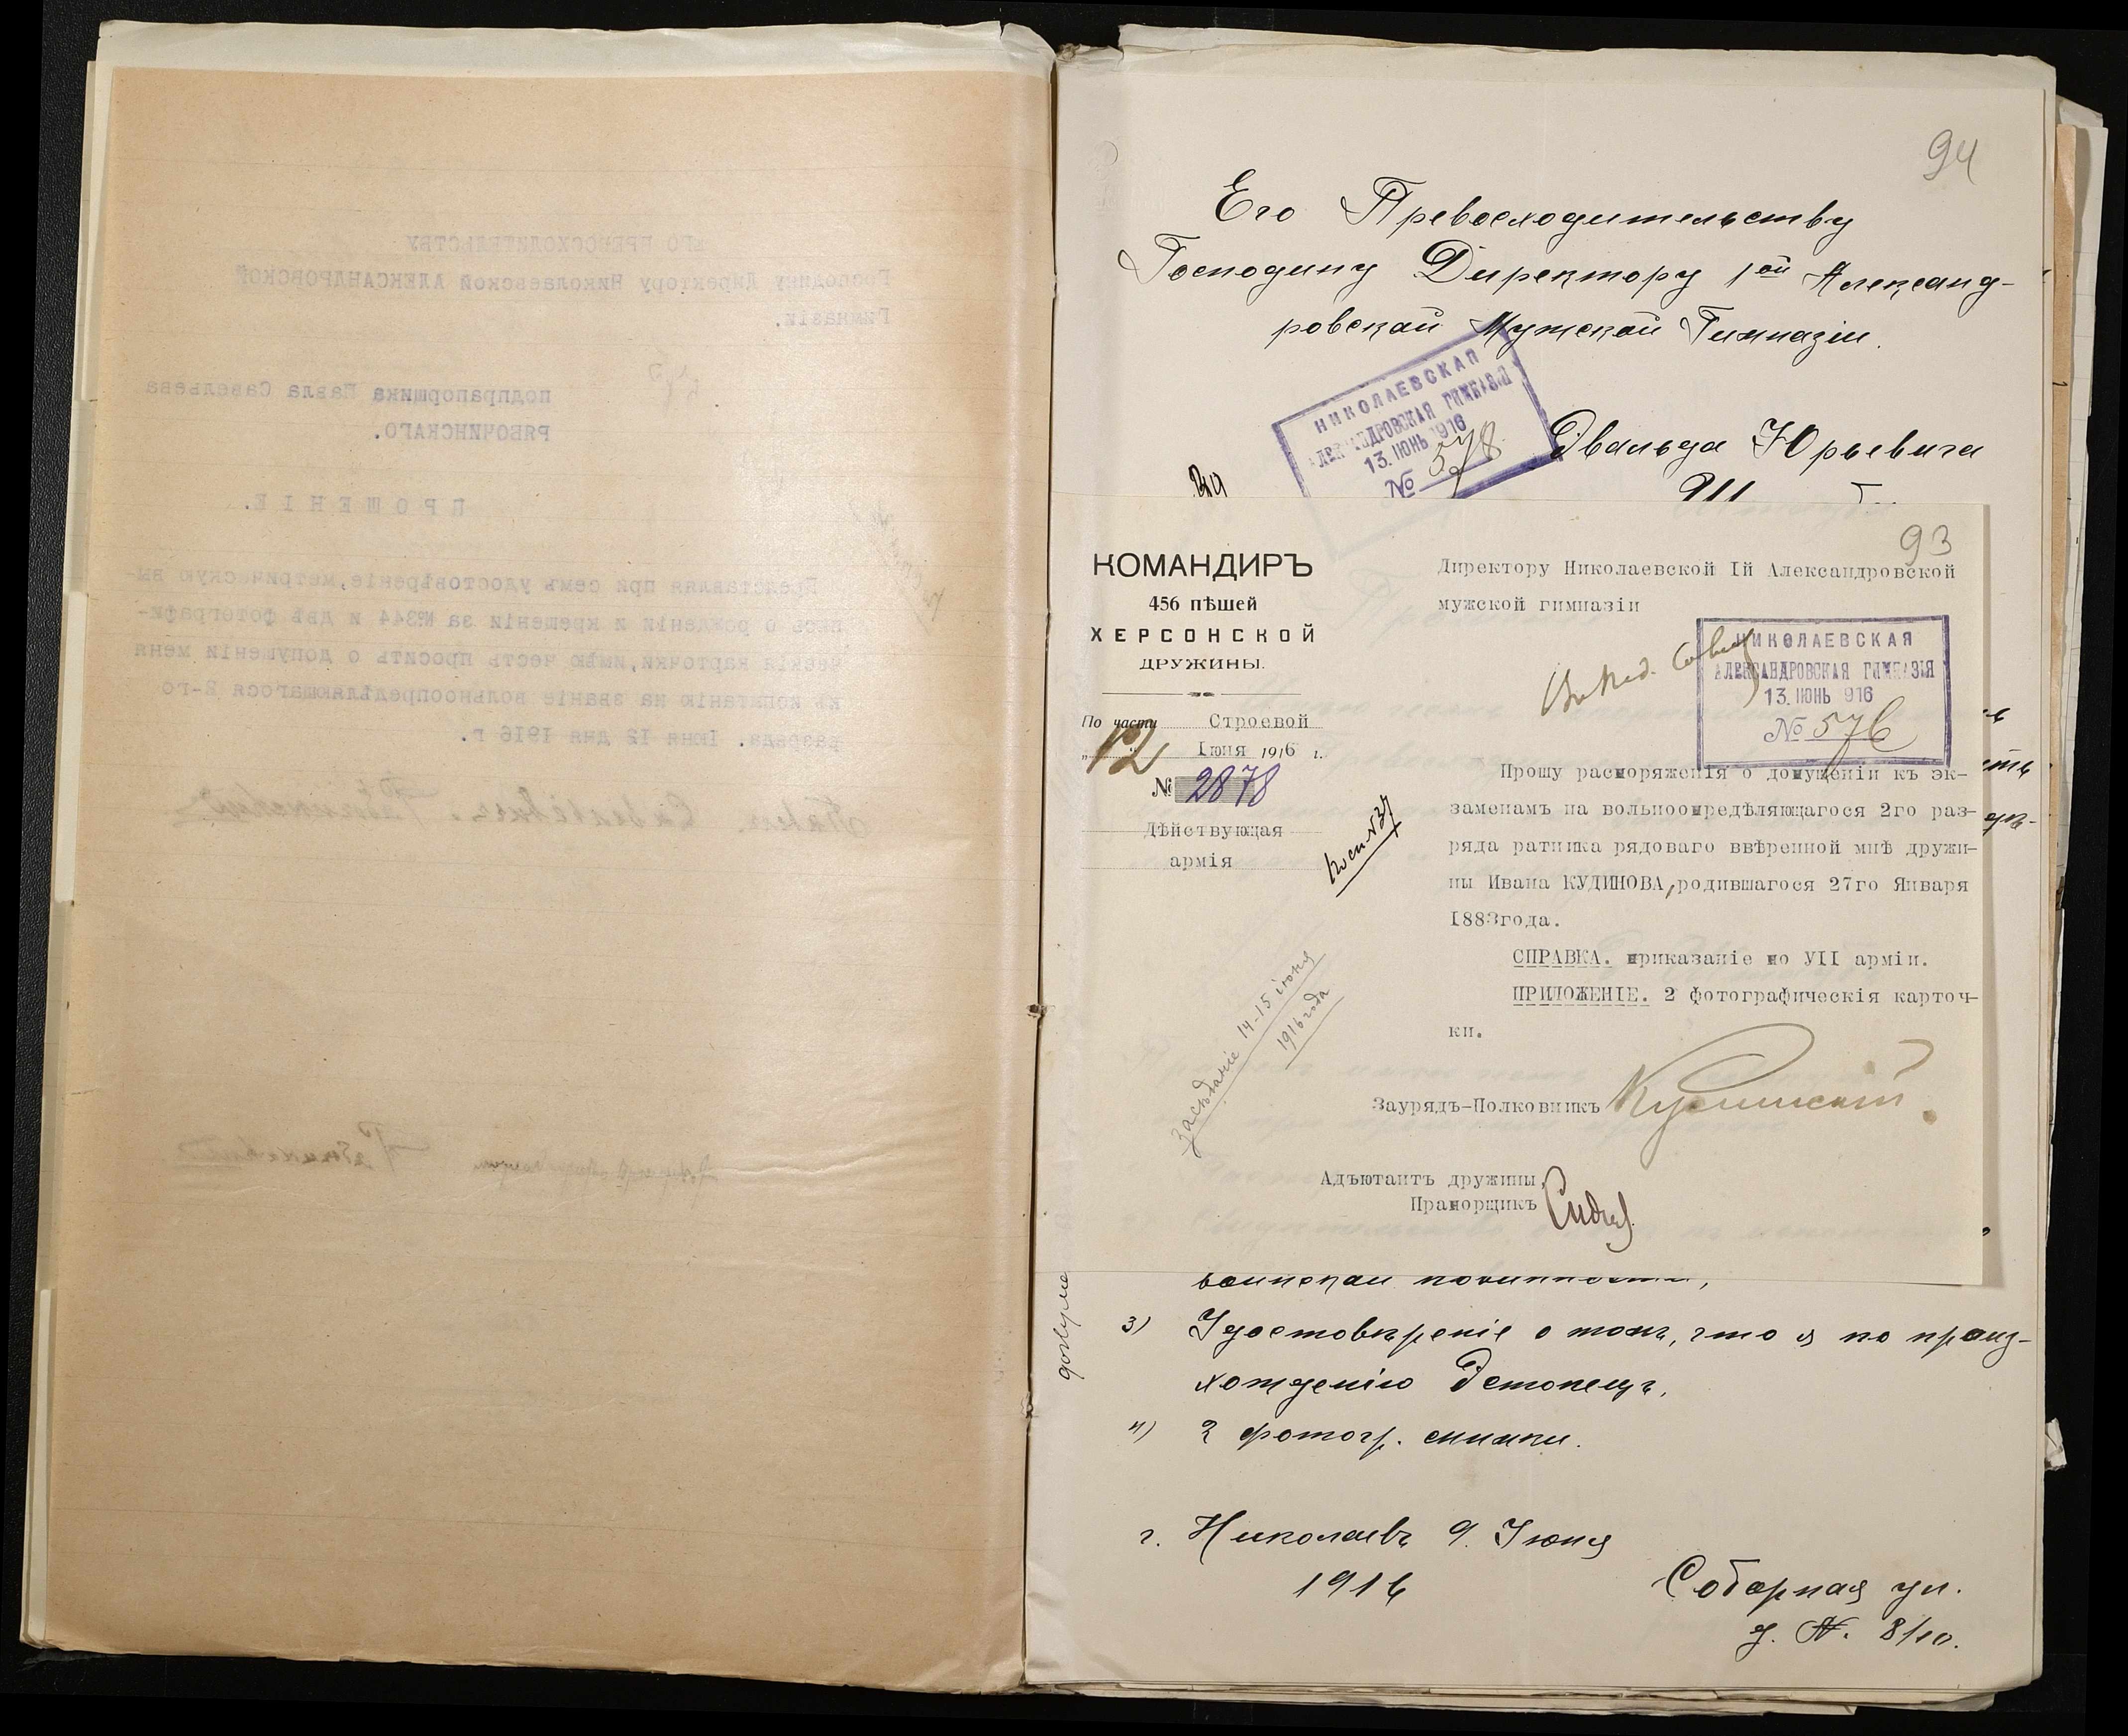 94
Его Превосходительству
Господину Директору 1ой Александ-
ровской Мужской Гимназіи.
НИКОЛАЕВСКАЯ
АЛЕКСАНДРОВСКАЯ ГИМНАЗІЯ
13. ІЮНЬ 916
№ 578
Эвальда Юрьевича
93
КОМАНДИРЪ
456 пѣшей
ХЕРСОНСКОЙ
ДРУЖИНЫ.
По части Строевой
12 Іюня 1916 г.
№ 2878
Дѣйствующая
армія
Директору Николаевской Iй Александровской
мужской гимназіи
НИКОЛАЕВСКАЯ
АЛЕКСАНДРОВСКАЯ ГИМНАЗІЯ
13. ІЮНЬ 916
№ 576
Прошу распоряженія о допущеніи къ эк-
заменамъ на вольноопредѣляющагося 2го раз-
ряда ратника рядоваго ввѣренной мнѣ дружи-
ны Ивана КУДИНОВА, родившагося 27го Января
1883года.
СПРАВКА. приказаніе по УII арміи.
ПРИЛОЖЕНІЕ. 2 фотографическія карточ-
ки.
Засѣданіе 14-15 іюня
1916 года
Заурядъ-Полковникъ
Адъютантъ дружины,
Прапорщикъ
воинской повинности,
3) Удостовѣреніе о томъ, что я по проис-
хожденію Эстонецъ,
4) 2 фотогр. снимки.
г. Николаевъ 9. Іюня
1916
Соборная ул.
д. №. 8/10.
ЕГО ПРЕВОСХОДИТЕЛЬСТВУ
Господину Директору Николаевской АЛЕКСАНДРОВСКОЙ
Гимназіи.
подпрапорщика Павла Савельева
РЯБОЧИНСКАГО.
ПРОШЕНІЕ.
Представляя при семъ удостовѣреніе, метрическую вы-
пись о рожденіи и крещеніи за №344 и двѣ фотографи-
ческія карточки, имѣю честь просить о допущеніи меня
къ испытанію на званіе вольноопредѣляющагося 2-го
разряда. Іюня 12 дня 1916 г.